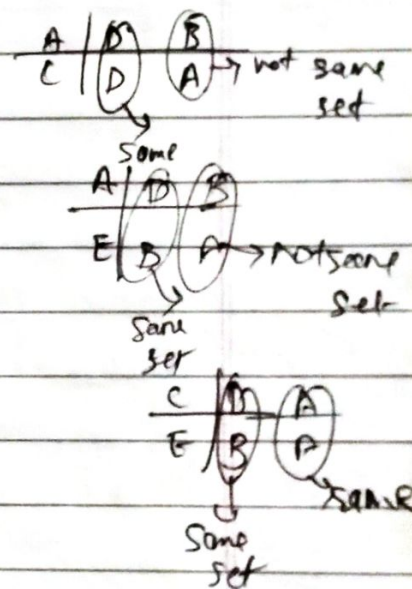 A | D B
C | D A → not same
set
same
A | D B
E | B A → not same
set
same
set
C | D A
E | B A
same
same
set